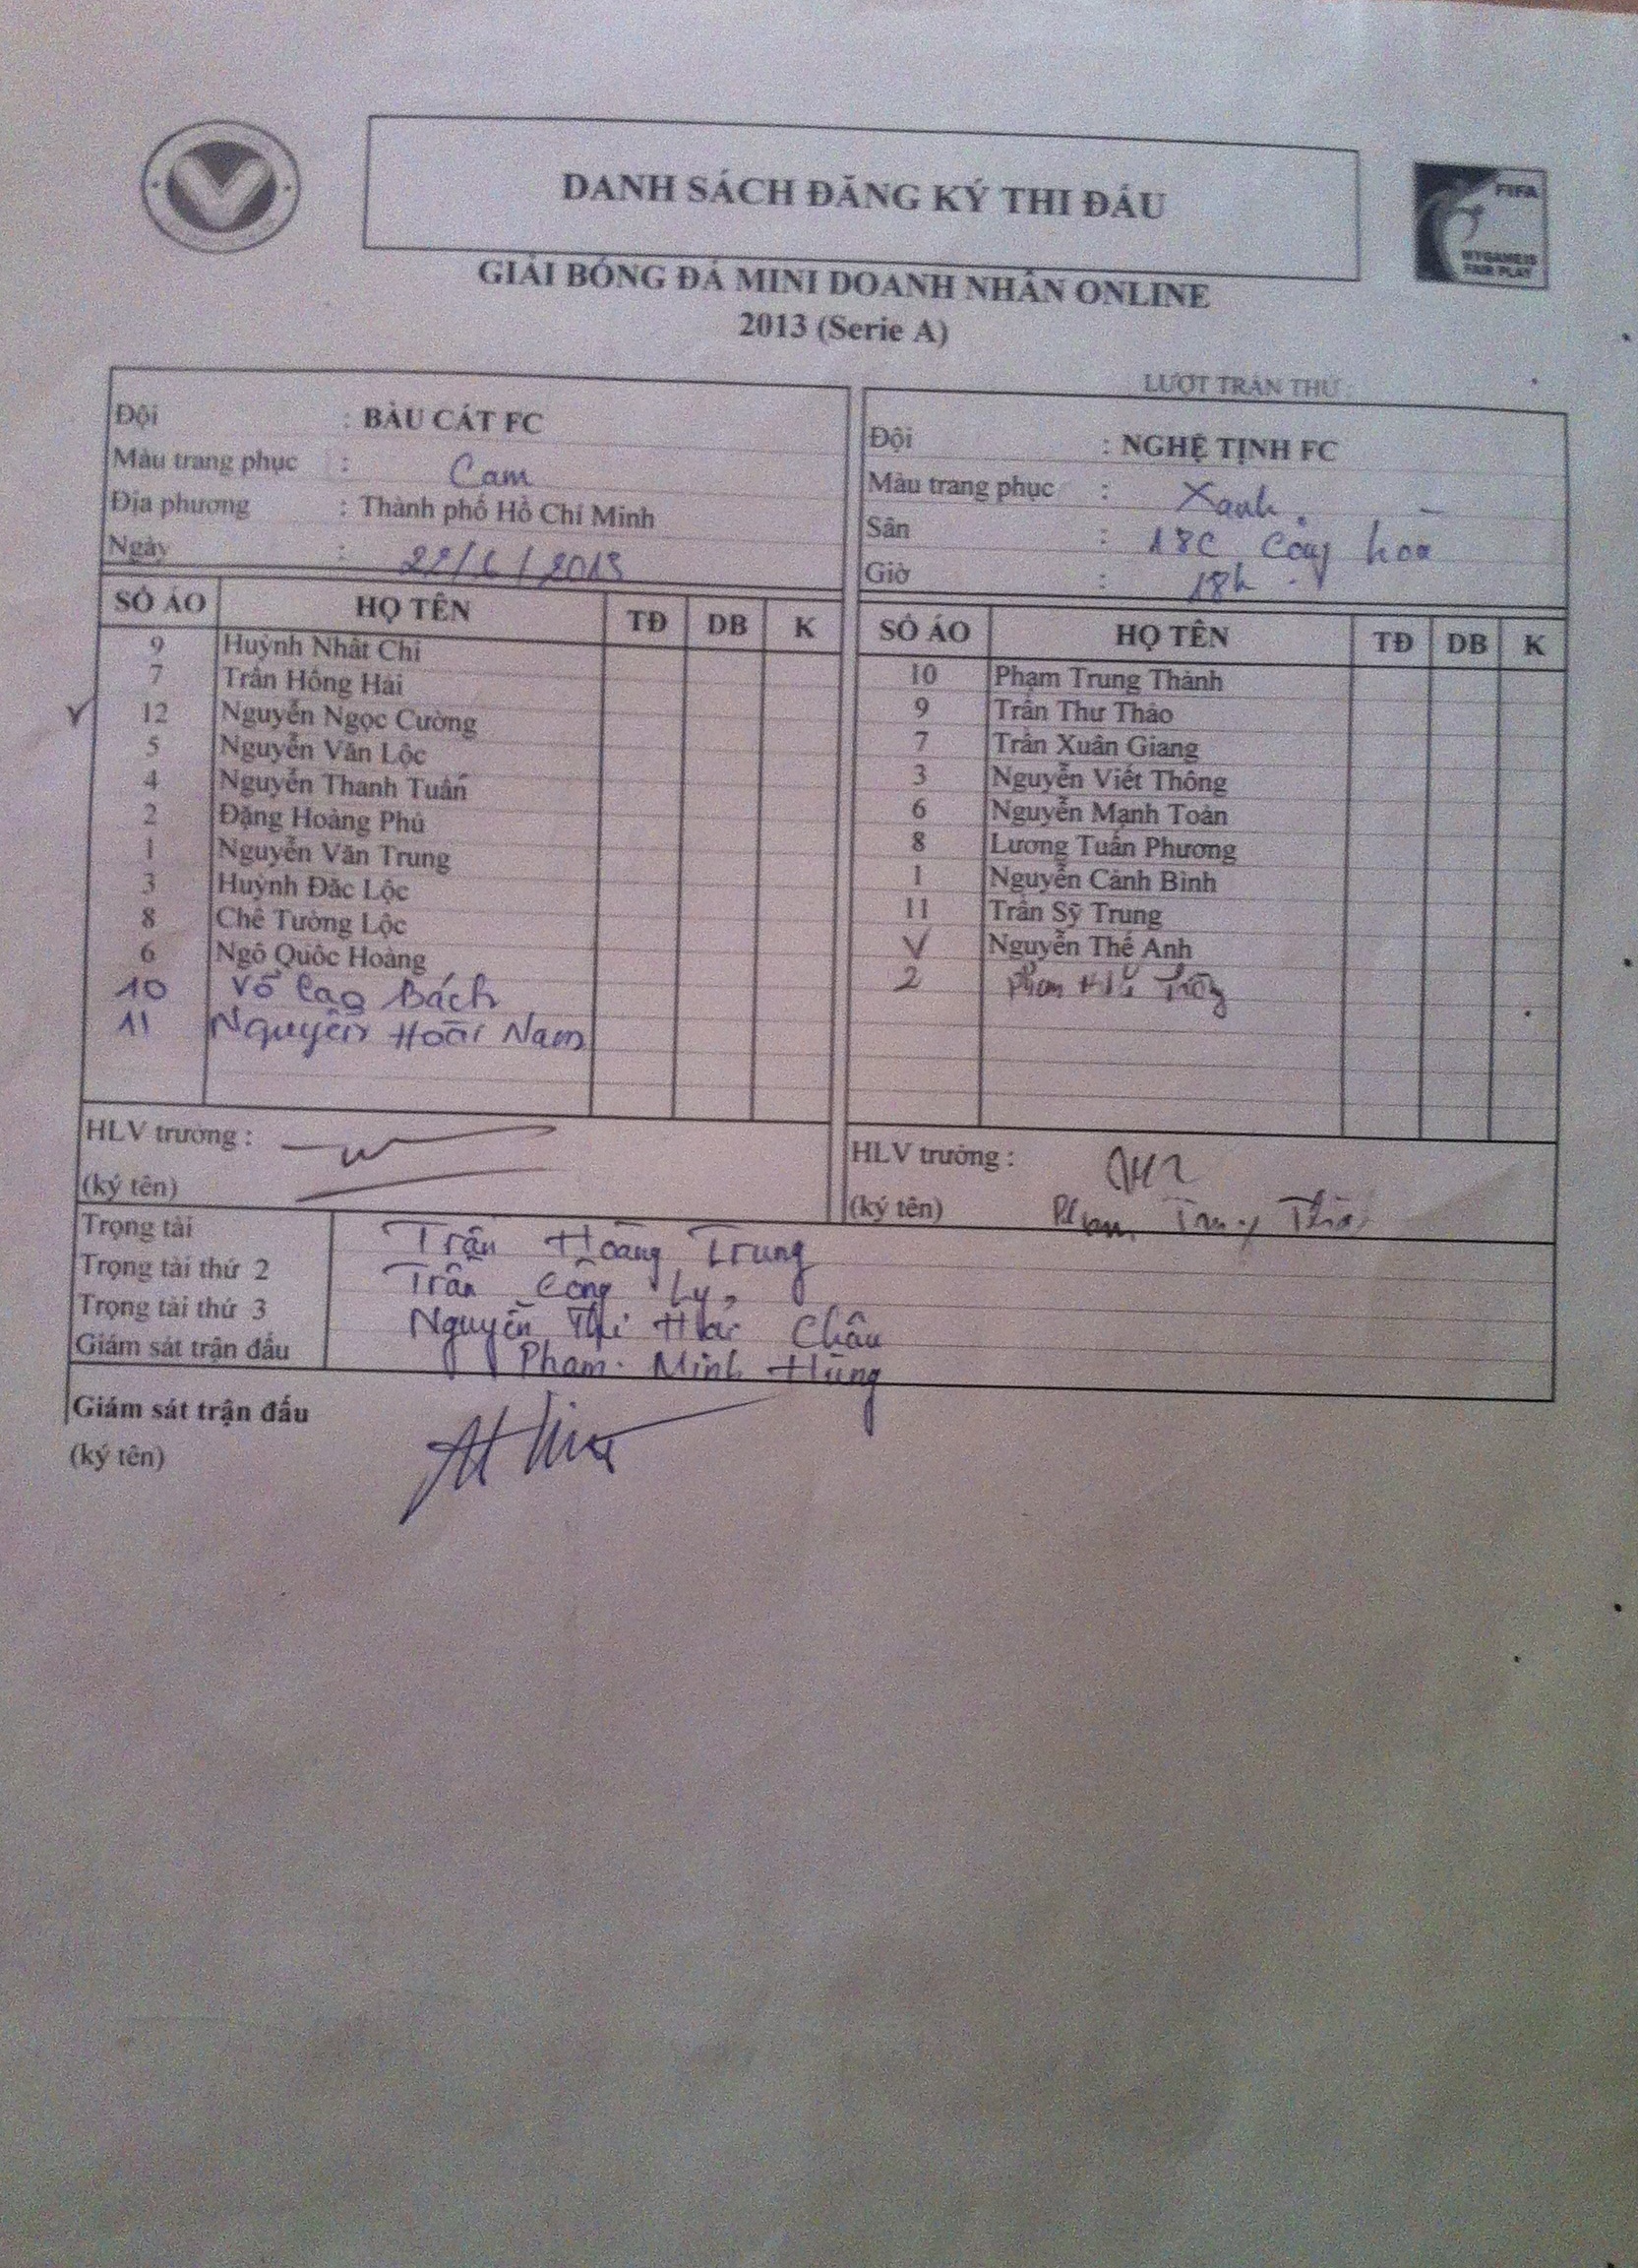 DANH SÁCH ĐĂNG KÝ THI ĐẤU
FIFA
MY GAME IS
FAIR PLAY
GIẢI BÓNG ĐÁ MINI DOANH NHÂN ONLINE
2013 (Serie A)
LƯỢT TRẬN THỨ :
Đội : BÀU CÁT FC
Màu trang phục : Cam
Địa phương : Thành phố Hồ Chí Minh
Ngày : 22/6/2013
Đội : NGHỆ TỊNH FC
Màu trang phục : Xanh
Sân : 18C Cộng hòa
Giờ : 18h
SỐ ÁO HỌ TÊN TĐ DB K
9 Huỳnh Nhất Chí
7 Trần Hồng Hải
V 12 Nguyễn Ngọc Cường
5 Nguyễn Văn Lộc
4 Nguyễn Thanh Tuấn
2 Đặng Hoàng Phú
1 Nguyễn Văn Trung
3 Huỳnh Đắc Lộc
8 Chế Tường Lộc
6 Ngô Quốc Hoàng
10 Võ Cao Bách
11 Nguyễn Hoài Nam
SỐ ÁO HỌ TÊN TĐ DB K
10 Phạm Trung Thành
9 Trần Thư Thảo
7 Trần Xuân Giang
3 Nguyễn Viết Thông
6 Nguyễn Mạnh Toàn
8 Lương Tuấn Phương
1 Nguyễn Cảnh Bình
11 Trần Sỹ Trung
V Nguyễn Thế Anh
2 Phạm
HLV trưởng :
(ký tên)
HLV trưởng :
(ký tên) Phạm Trung
Trọng tài Trần Hoàng Trung
Trọng tài thứ 2 Trần Công Lý
Trọng tài thứ 3 Nguyễn Thị Hải Châu
Giám sát trận đấu Phạm Minh Hùng
Giám sát trận đấu
(ký tên)